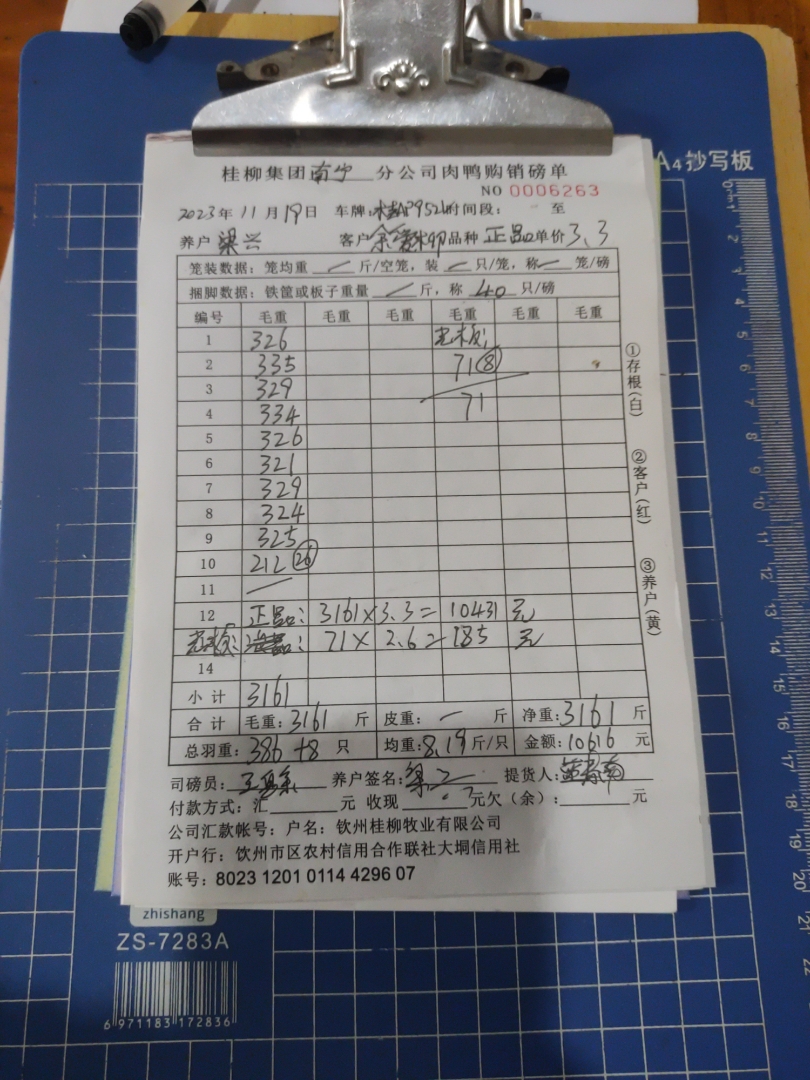 A4抄写板
桂柳集团南宁分公司肉鸭购销磅单
NO 0006263
2023年11月19日 车牌: 时间段: 至
养户 梁兴 客户 品种 正品 单价3.3
笼装数据:笼均重 / 斤/空笼,装 / 只/笼,称 / 笼/磅
捆脚数据:铁筐或板子重量 / 斤,称 40 只/磅
编号 毛重 毛重 毛重 毛重 毛重 毛重
1 326
2 335 71⑧
3 329
4 334 71
5 326
6 321
7 329
8 324
9 325
10 212 (26)
11 /
12 正品: 3161×3.3= 10431 元
: 71× 2.6= 185 元
14
小计 3161
合计 毛重:3161 斤 皮重: — 斤 净重:3161 斤
总羽重:386+8 只 均重:8.19斤/只 金额:10616 元
司磅员: 养户签名: 提货人:
付款方式:汇 元 收现 元欠(余): 元
公司汇款帐号:户名:钦州桂柳牧业有限公司
开户行:钦州市区农村信用合作联社大垌信用社
账号:8023 1201 0114 4296 07
①存根(白)
②客户(红)
③养户(黄)
zhishang
ZS-7283A
6 971183 172836
0mm 1 2 3 4 5 6 7 8 9 10 11 12 13 14 15 16 17 18 19 20 21 22